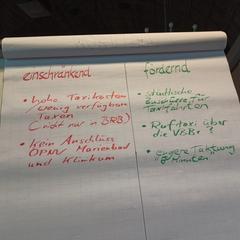 einschränkend
• hohe Taxikosten
/wenig verfügbare
Taxen
(nicht nur in BRB)
• kein Anschluss
ÖPNV Marienbad
und Klinikum
fördernd
• städtische
Zuschüsse für
Taxifahrten
• Ruftaxi über
die VBBr?
• "engere Taktung
Minuten"